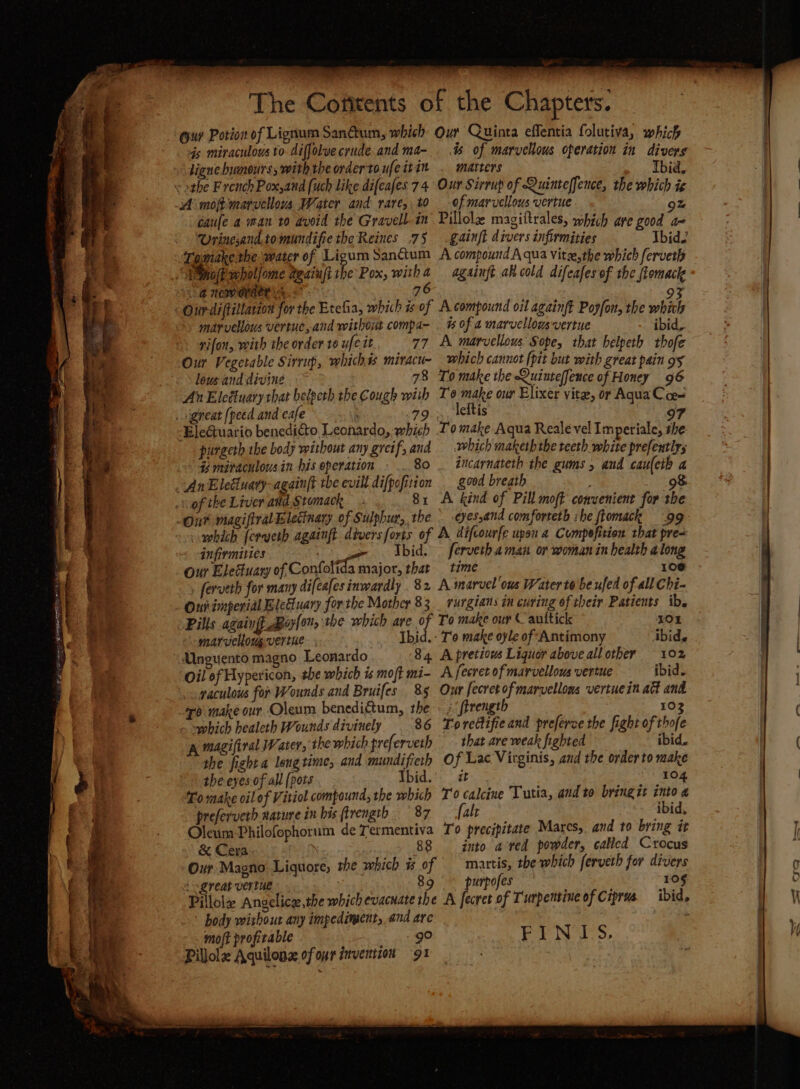 The Contents of the Chapters.
Our Potion of Lignum Sanctum, which
is miraculous to dissolve crude and ma-
ligne humours, with the order to use it in
the French Pox, and such like diseases 74
A most marvellous Water and rare, to
cause a man to avoid the Gravell in
Urine, and to mundifie the Reines 75
To make the water of Ligum Sanctum
most wholsome against the Pox, with a
a new order 76
Our distillation for the Etesia, which is of
marvellous vertue, and without compa-
rison, with the order to use it 77
Our Vegetable Sirrup, which is miracu-
lous and divine 78
An Electuary that helpeth the Cough with
great speed and ease 79
Electuario benedicto Leonardo, which
purgeth the body without any greif, and
is miraculous in his operation 80
An Electuary against the evill disposition
of the Liver and Stomack 81
Our magistral Electuary of Sulphur, the
which serveth against divers sorts of
infirmities Ibid.
Our Electuary of Consolida major, that
serveth for many diseases inwardly 82
Our imperial Electuary for the Mother 83
Pills against Poyson, the which are of
marvellous vertue Ibid.
Unguento magno Leonardo 84
Oil of Hypericon, the which is most mi-
raculous for Wounds and Bruises 85
To make our Oleum benedictum, the
which healeth Wounds divinely 86
A magistral Water, the which preserveth
the sight a long time, and mundifieth
the eyes of all spots Ibid.
To make oil of Vitiol compound, the which
preserveth nature in his strength 87
Oleum Philosophorum de Termentiva
& Cera 88
Our Magno Liquore, the which is of
great vertue 89
Pillolæ Angelicæ, the which evacuate the
body without any impediment, and are
most profitable 90
Pillolæ Aquilonæ of our invention 91
Our Quinta essentia solutiva, which
is of marvellous operation in divers
matters Ibid.
Our Sirrup of Quintessence, the which is
of marvellous vertue 92
Pillolæ magistrales, which are good a-
gainst divers infirmities Ibid.
A compound Aqua vitæ, the which serveth
against all cold diseases of the stomack
93
A compound oil against Poyson, the which
is of a marvellous vertue ibid.
A marvellous Sope, that helpeth those
which cannot spit but with great pain 95
To make the Quintessence of Honey 96
To make our Elixer vitæ, or Aqua Cœ-
lestis 97
To make Aqua Reale vel Imperiale, the
which maketh the teeth white presently,
incarnateth the gums, and causeth a
good breath 98
A kind of Pill most convenient for the
eyes, and comforteth the stomack 99
A discourse upon a Composition that pre-
serveth a man or woman in health a long
time 100
A marvel'ous Water to be used of all Chi-
rurgians in curing of their Patients ib.
To make our Caustick 101
To make oyle of Antimony ibid.
A pretious Liquor above all other 102
A secret of marvellous vertue ibid.
Our secret of marvellous vertue in act and
strength 103
To rectifie and preserve the sight of those
that are weak sighted ibid.
Of Lac Virginis, and the order to make
it 104
To calcine Tutia, and to bring it into a
salt ibid.
To precipitate Mares, and to bring it
into a red powder, called Crocus
martis, the which serveth for divers
purposes 105
A secret of Turpentine of Ciprus ibid.
FINIS.